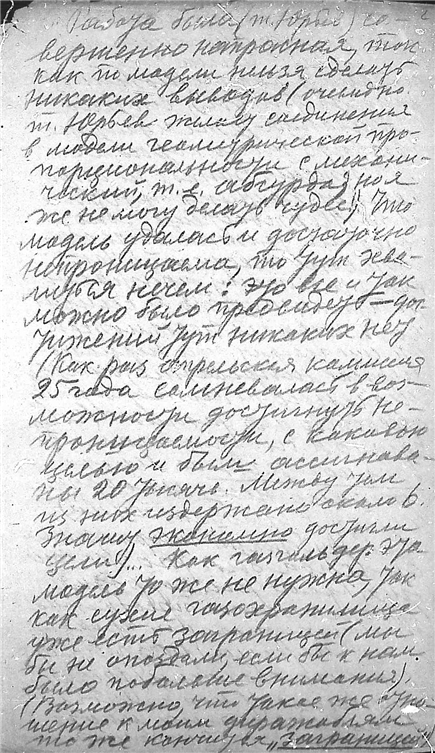 Работа была (т. Юрьев) со-
вершенно напрасная, так
как по модели нельзя сделать
никаких выводов (очевидно
т. Юрьев желал соединения
в модели геометрической про-
порциональности с механи-
ческой, т. е. абсурда; но я
же не могу делать чудес). Что
модель удалась и достаточно
непроницаема, то тут хва-
литься нечем: это все и так
можно было предвидеть — дос-
тижений тут никаких нет
(Как раз апрельская комиссия
25 года сомневалась в воз-
можности достигнуть не-
проницаемости, с каковою
целью и были ассигнова-
ны 20 тысяч. Между тем
из них издержано около 6.
Значит экономно достигли
цели)... Как газгольдер эта
модель то же не нужна, так
как сухие газохранилища
уже есть заграницей (мы
бы не опоздали, если бы к нам
было побольше внимания).
(Возможно, что такое же отно-
шение к моим дирижаблям
то же кончится „заграницей